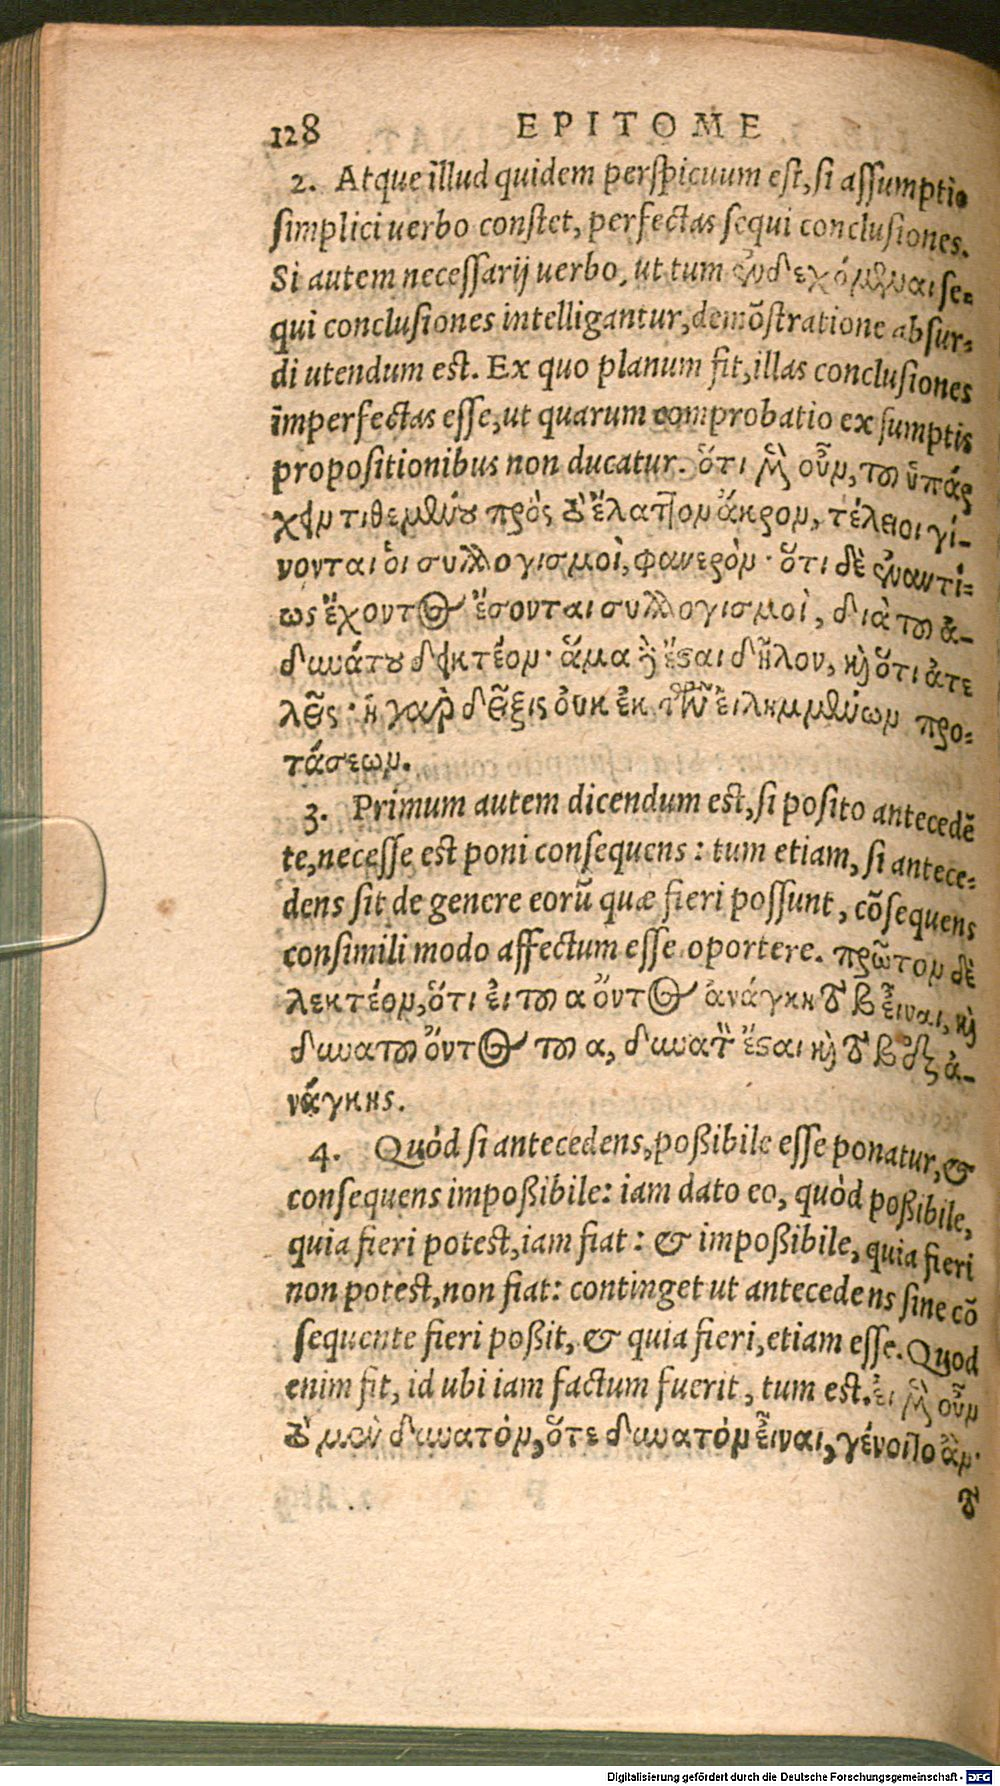 128 EPITOME
2. Atque illud quidem perspicuum est, si assumptio
simplici uerbo constet, perfectas sequi conclusiones.
Si autem necessarij uerbo, ut tum ἐνδεχόμεναι se-
qui conclusiones intelligantur, demõstratione absur-
di utendum est. Ex quo planum fit, illas conclusiones
imperfectas esse, ut quarum comprobatio ex sumptis
propositionibus non ducatur. ὅτι μὲν οὖν, τοῦ ὑπάρ
χειν τιθεμένου πρὸς τὸ ἔλαττον ἄκρον, τέλειοι γί-
νονται ὁι συλλογισμοὶ, φανερὸν· ὅτι δὲ ἐναντί-
ως ἔχοντος ἔσονται συλλογισμοὶ, διὰ τοῦ ἀ-
δυνάτου δεικτέον· ἅμα δ᾽ ἔσται δῆλον, καὶ ὅτι ἀτε
λεῖς· ἡ γὰρ δεῖξις ὀυκ ἐκ τῶν ἐιλημμένων προ-
τάσεων.
3. Primum autem dicendum est, si posito antecedẽ
te, necesse est poni consequens: tum etiam, si antece-
dens sit de genere eorũ quæ fieri possunt, cõsequens
consimili modo affectum esse oportere. πρῶτον δὲ
λεκτέον, ὅτι ἐι τοῦ α ὄντος ἀνάγκη τὸ β εἶναι, καὶ
δυνατοῦ ὄντος τοῦ α, δυνατὸν ἔσται καὶ τὸ β ἐξ ἀ-
νάγκης.
4. Quòd si antecedens, poßibile esse ponatur, &
consequens impoßibile: iam dato eo, quòd poßibile,
quia fieri potest, iam fiat: & impoßibile, quia fieri
non potest, non fiat: continget ut antecedens sine cõ
sequente fieri poßit, & quia fieri, etiam esse. Quod
enim fit, id ubi iam factum fuerit, tum est. ἐι μὲν οὖν
τὸ μὲν δυνατόν, ὅτε δυνατὸν εἶναι, γένοιτο ἂν·
τὸ
Digitalisierung gefördert durch die Deutsche Forschungsgemeinschaft - DFG